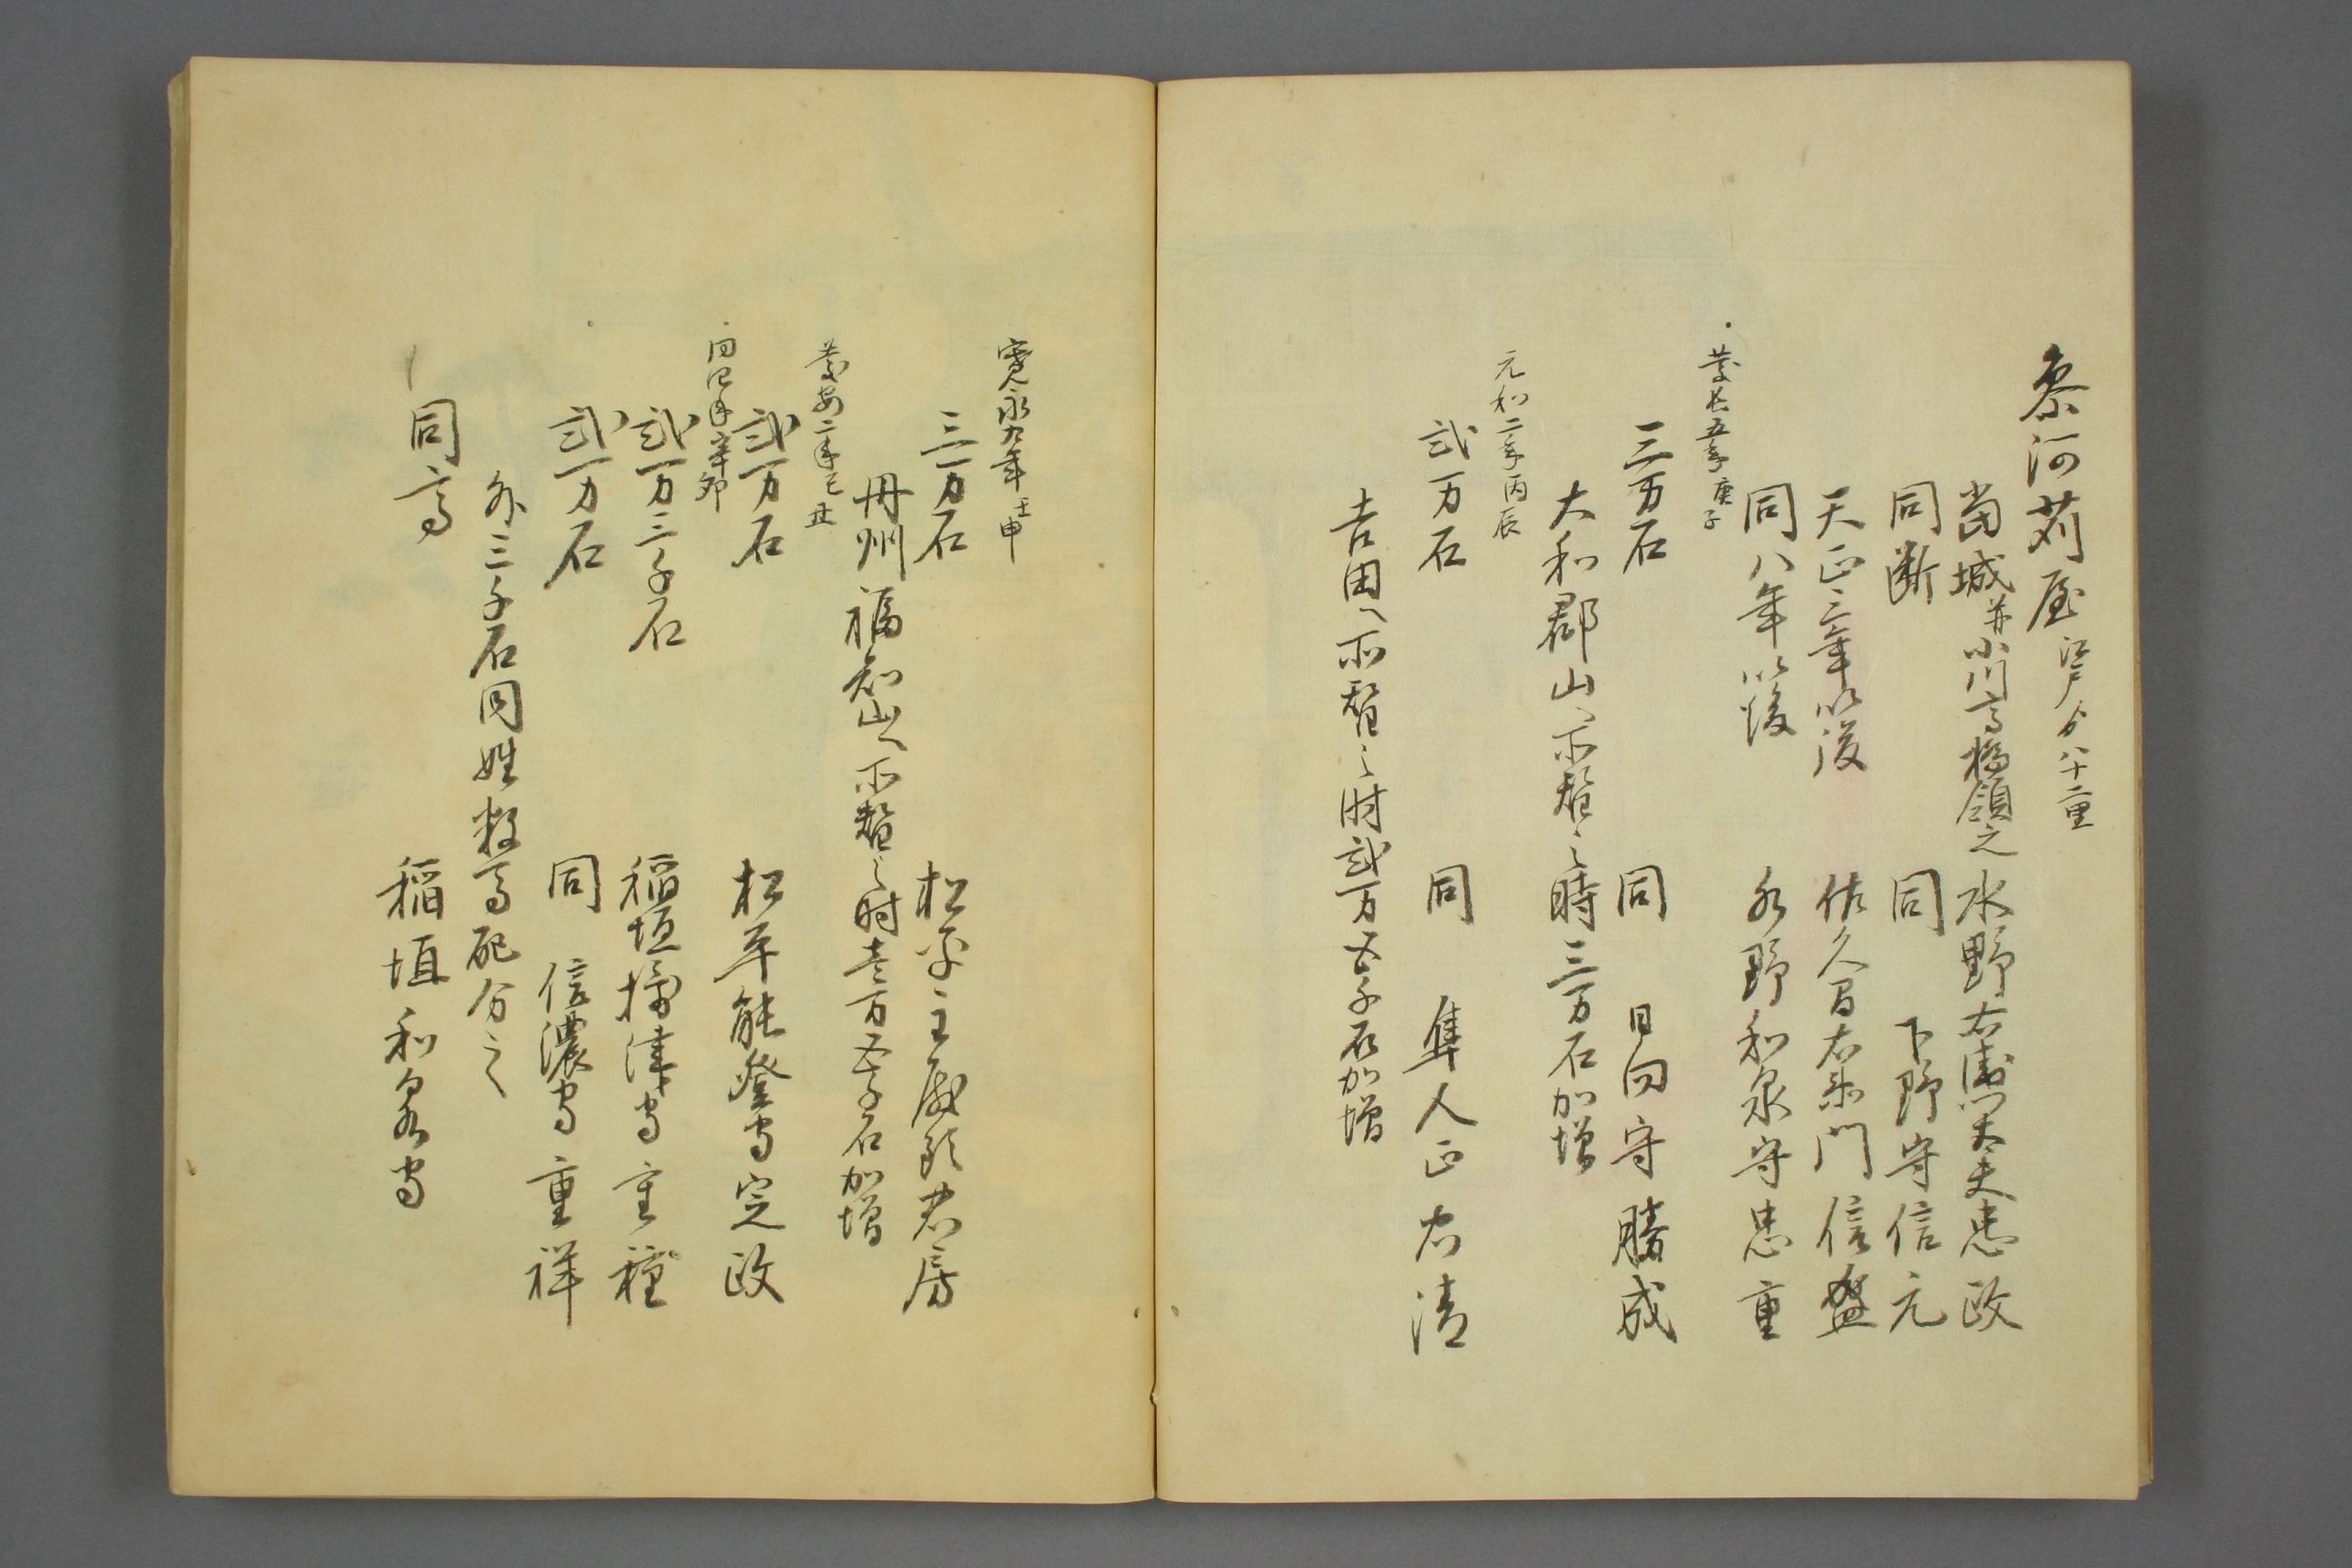 参河苅屋 江戸ゟ八十二里
当城并小川高橋領之 水野右衛門大夫忠政
同断 同 下野守信元
天正三年以後 佐久間右衛門信盛
同八年以後 水野和泉守忠重
慶長五年庚子
三万石 同 日向守勝成
大和郡山へ所替之時三万石加増
元和二年丙辰
弐万石 同 隼人正忠清
吉田へ所替之時弐万五千石加増
寛永九年壬申
三万石 松平主殿頭忠房
丹州福知山へ所替之時壱万五千石加増
慶安二年己丑
弐万石 松平能登守定政
同四年辛卯
弐万三千石 稲垣摂津守重種
弐万石 同 信濃守重祥
外三千石同姓数馬配分之
同高 稲垣和泉守